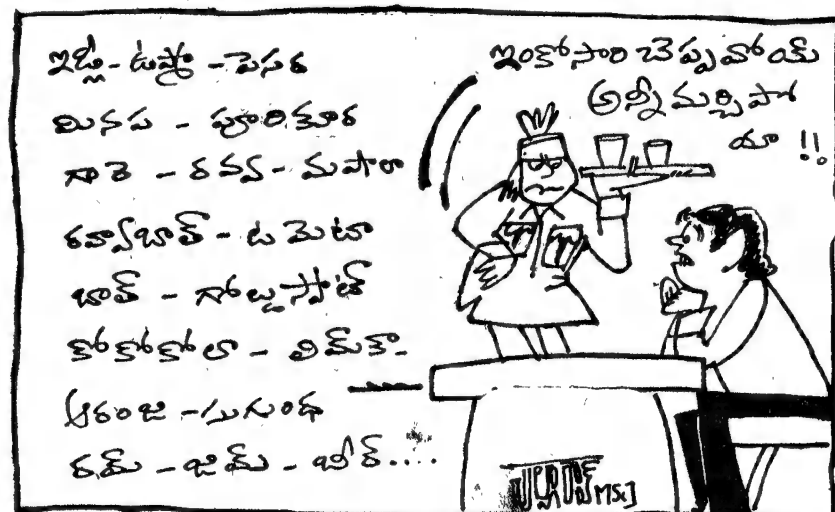 ఇడ్లీ - ఉప్మా - పెసర
మినప - పూరికూర
గారె - రవ్వ - మసాలా
రవ్వాబాత్ - టమెటా
బాత్ - గోల్డుస్పాట్
కోకోకోలా - లిమ్కా -
ఆరంజ - సుగంధ
రమ్ - జిమ్ - బీర్....
ఇంకోసారి చెప్పవోయ్
అన్నీ మర్చిపో
యా !!
MSc